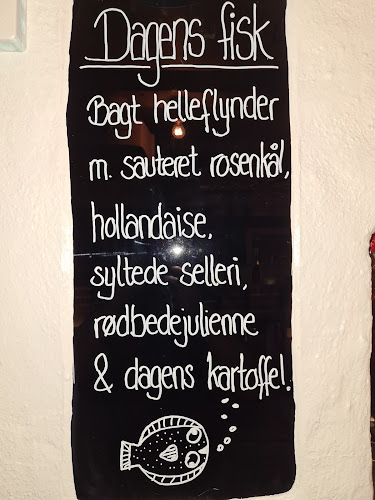 Dagens fisk
Bagt helleflynder
m. sauteret rosenkål,
hollandaise,
syltede selleri,
rødbedejulienne
& dagens kartoffel.